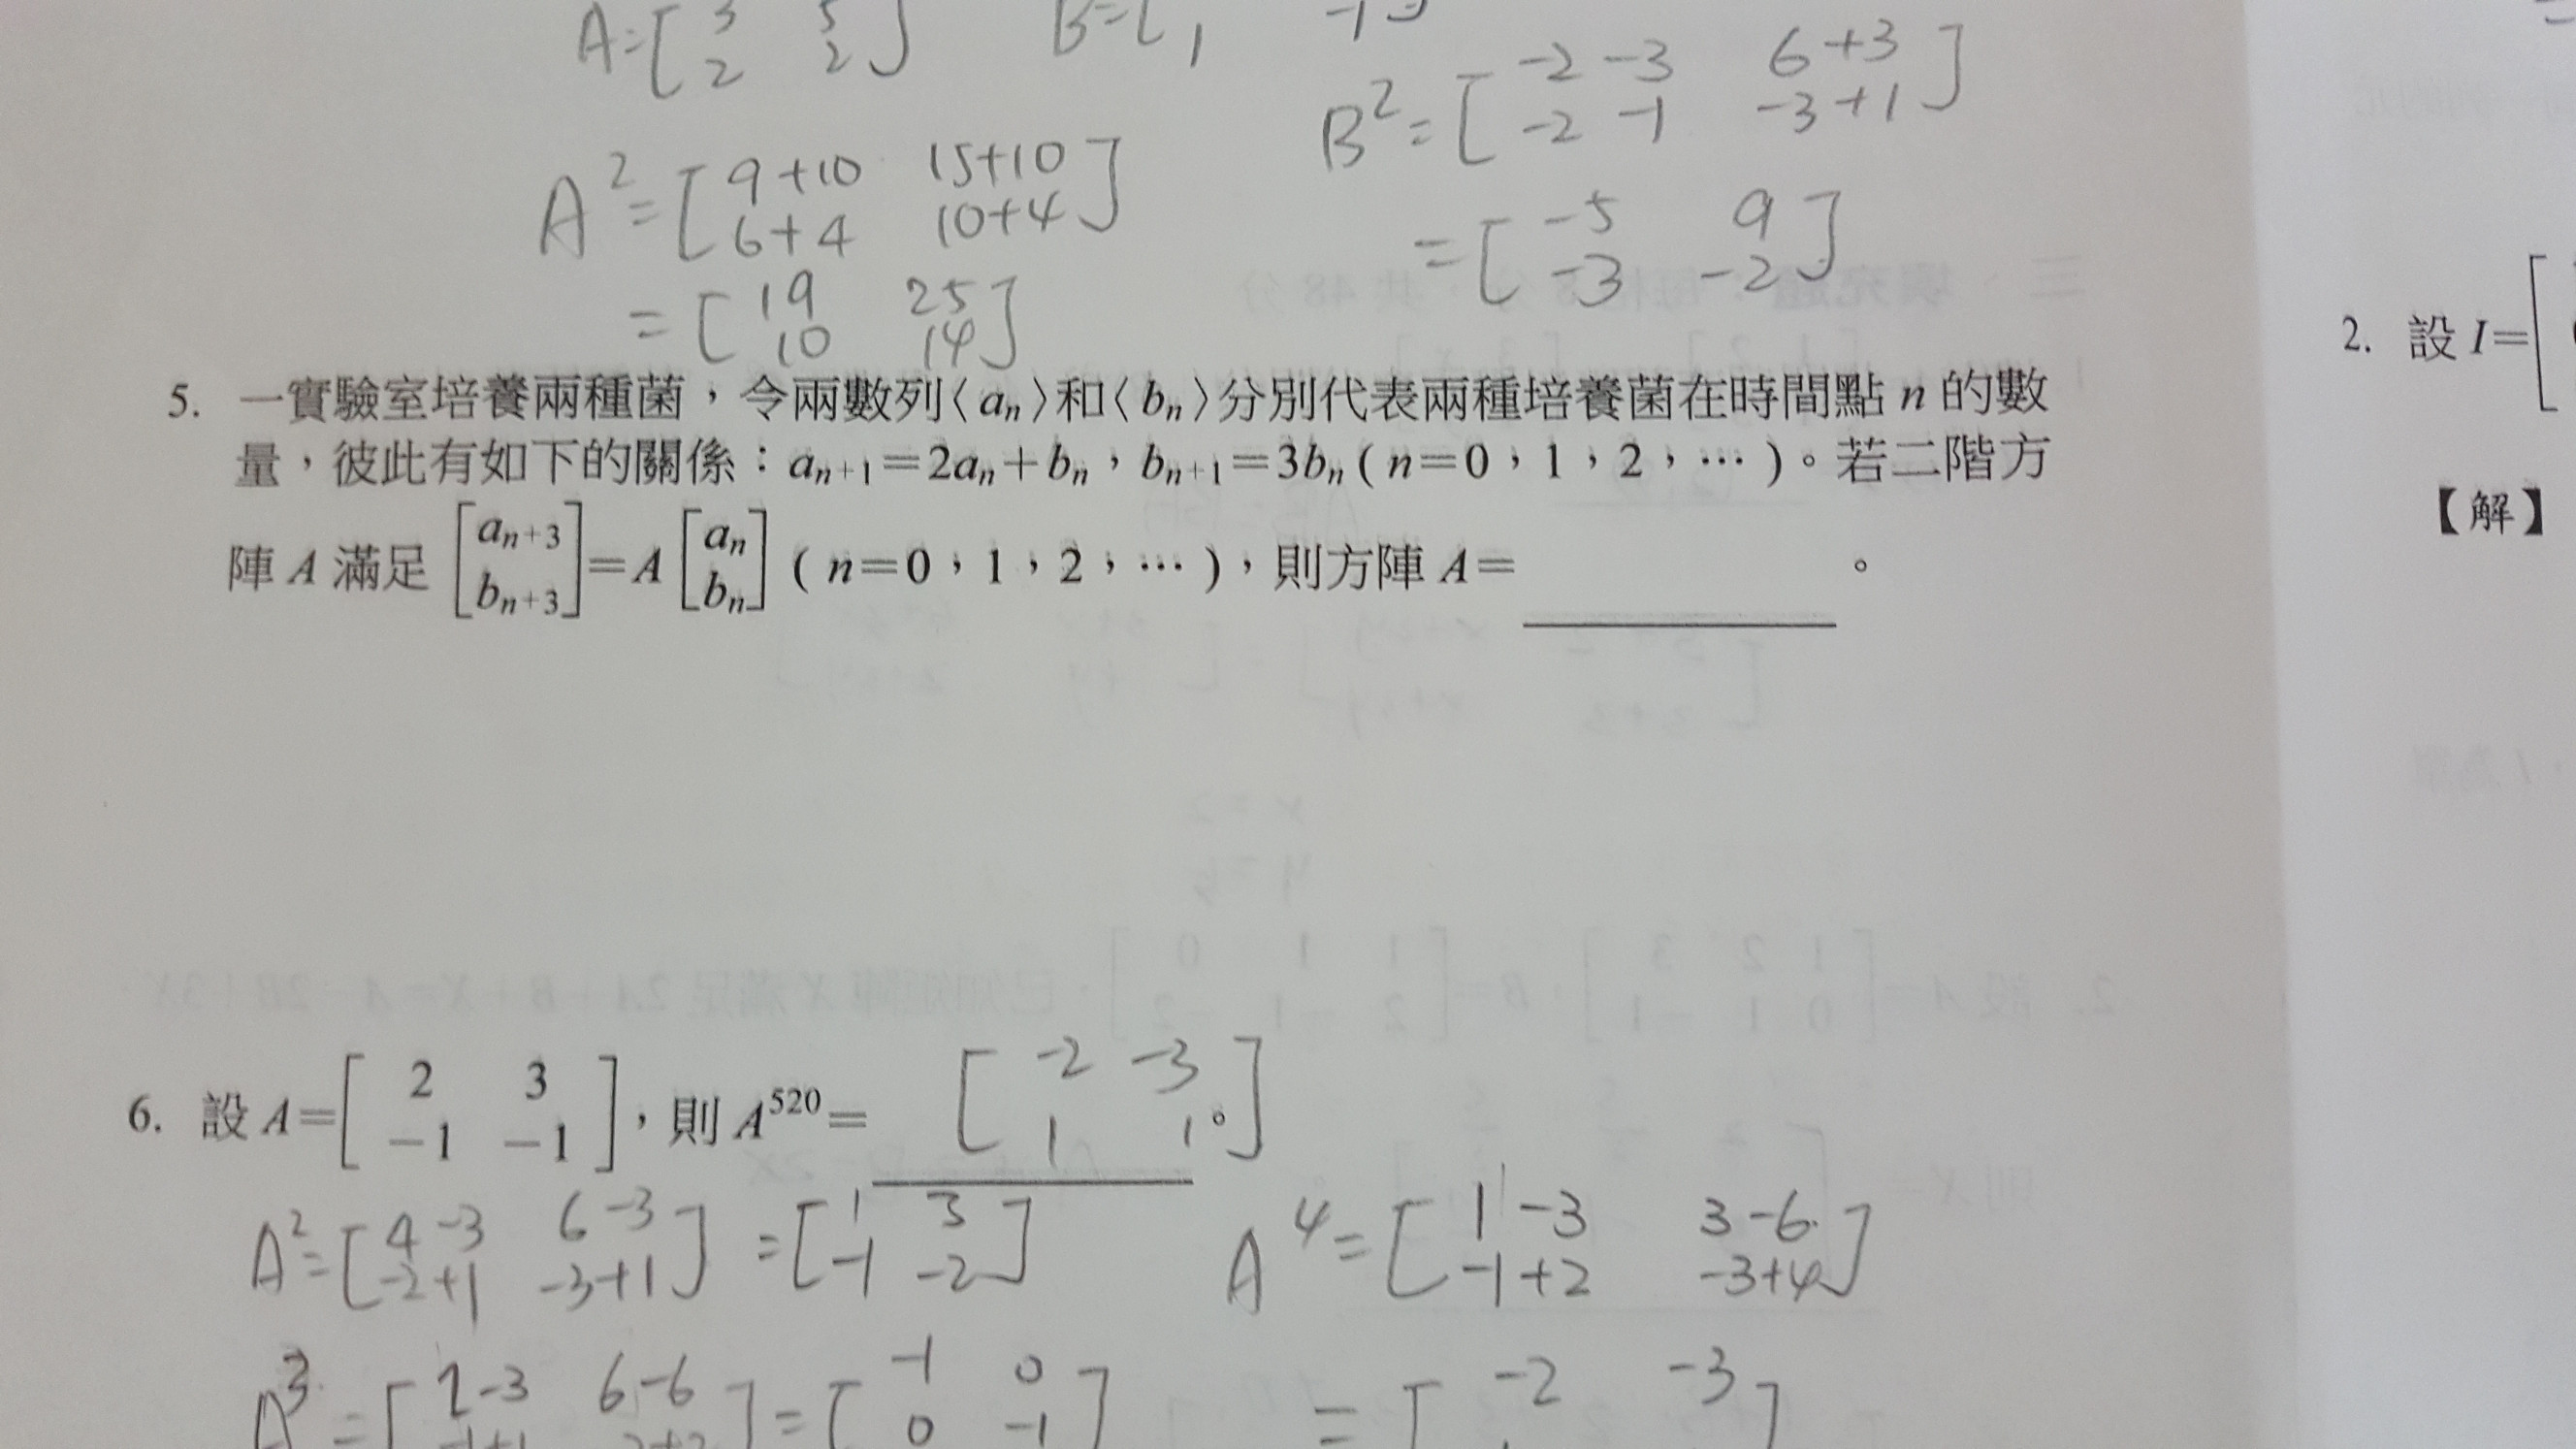 A=[3 5
2 2] B=[ 1 -1
A²=[9+10 15+10
6+4 10+4]
=[19 25
10 14]
B²=[-2-3 6+3
-2-1 -3+1]
=[-5 9
-3 -2]
5. 一實驗室培養兩種菌，令兩數列〈aₙ〉和〈bₙ〉分別代表兩種培養菌在時間點 n 的數
量，彼此有如下的關係：aₙ₊₁=2aₙ+bₙ，bₙ₊₁=3bₙ ( n=0，1，2，⋯ )。若二階方
陣 A 滿足 [aₙ₊₃
bₙ₊₃]=A[aₙ
bₙ] ( n=0，1，2，⋯ )，則方陣 A= 。
6. 設 A=[2 3
-1 -1]，則 A⁵²⁰= [-2 -3
1 1]。
A²=[4-3 6-3
-2+1 -3+1] =[1 3
-1 -2]
A⁴=[1-3 3-6
-1+2 -3+4]
A³=[2-3 6-6
=[-1 0
0 -1]
=[-2 -3
2. 設 I=[
【解】